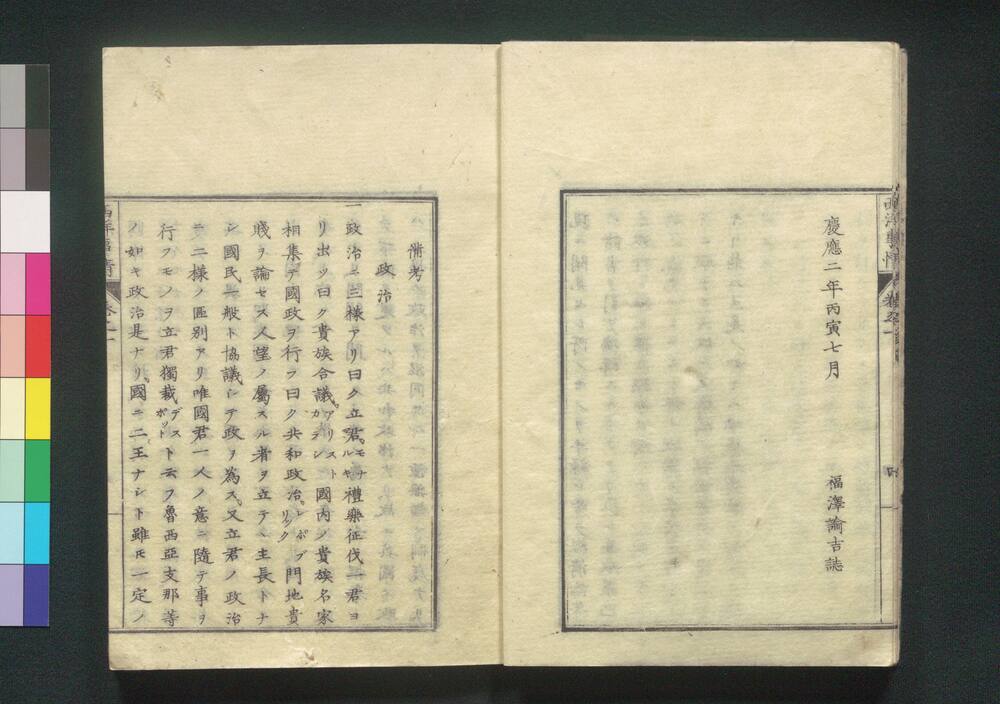 慶應二年丙寅七月
福澤諭吉誌
備考
政治
一政治ニ三様アリ曰ク立君モナルキ禮樂征伐一君ヨ
リ出ツ曰ク貴族合議アリストカラシ國内ノ貴族名家
相集テ國政ヲ行フ曰ク共和政治レポブリック門地貴
賤ヲ論セス人望ノ属スル者ヲ立テヽ主長トナ
シ國民一般ト協議シテ政ヲ為ス又立君ノ政治
ニ二様ノ區別アリ唯國君一人ノ意ニ隨テ事ヲ
行フモノヲ立君獨裁デスポットト云フ魯西亞支那等
ノ如キ政治是ナリ國ニ二王ナシト雖モ一定ノ
西洋事情
卷之一